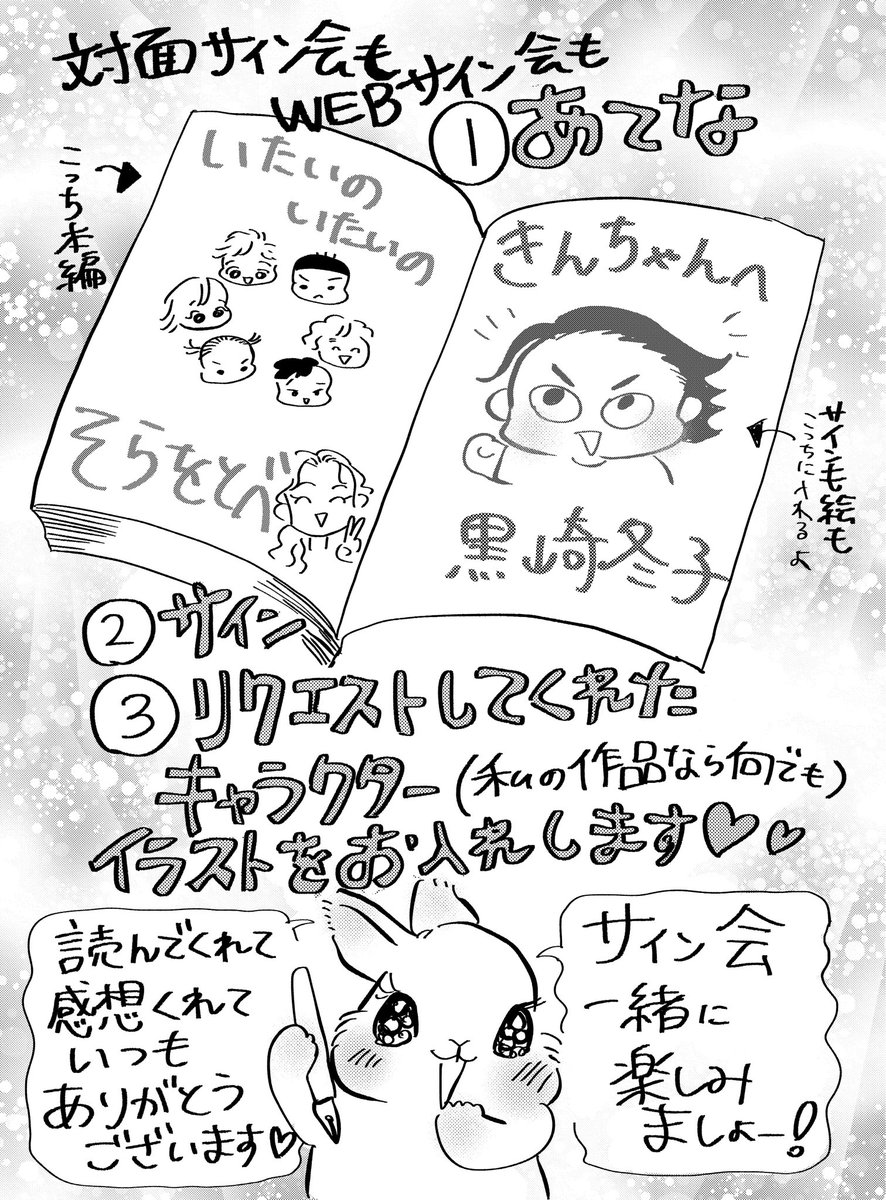 対面サイン会も
WEBサイン会も
①あてな
こっち本編
いたいの
いたいの
そらをとべ
きんちゃんへ
黒崎冬子
サインも絵も
こっちに入れるよ
②サイン
③リクエストしてくれた
キャラクター(私の作品なら何でも)
イラストをお入れします♡♡
読んでくれて
感想くれて
いつも
ありがとう
ございます♡
サイン会
一緒に
楽しみ
ましょー!